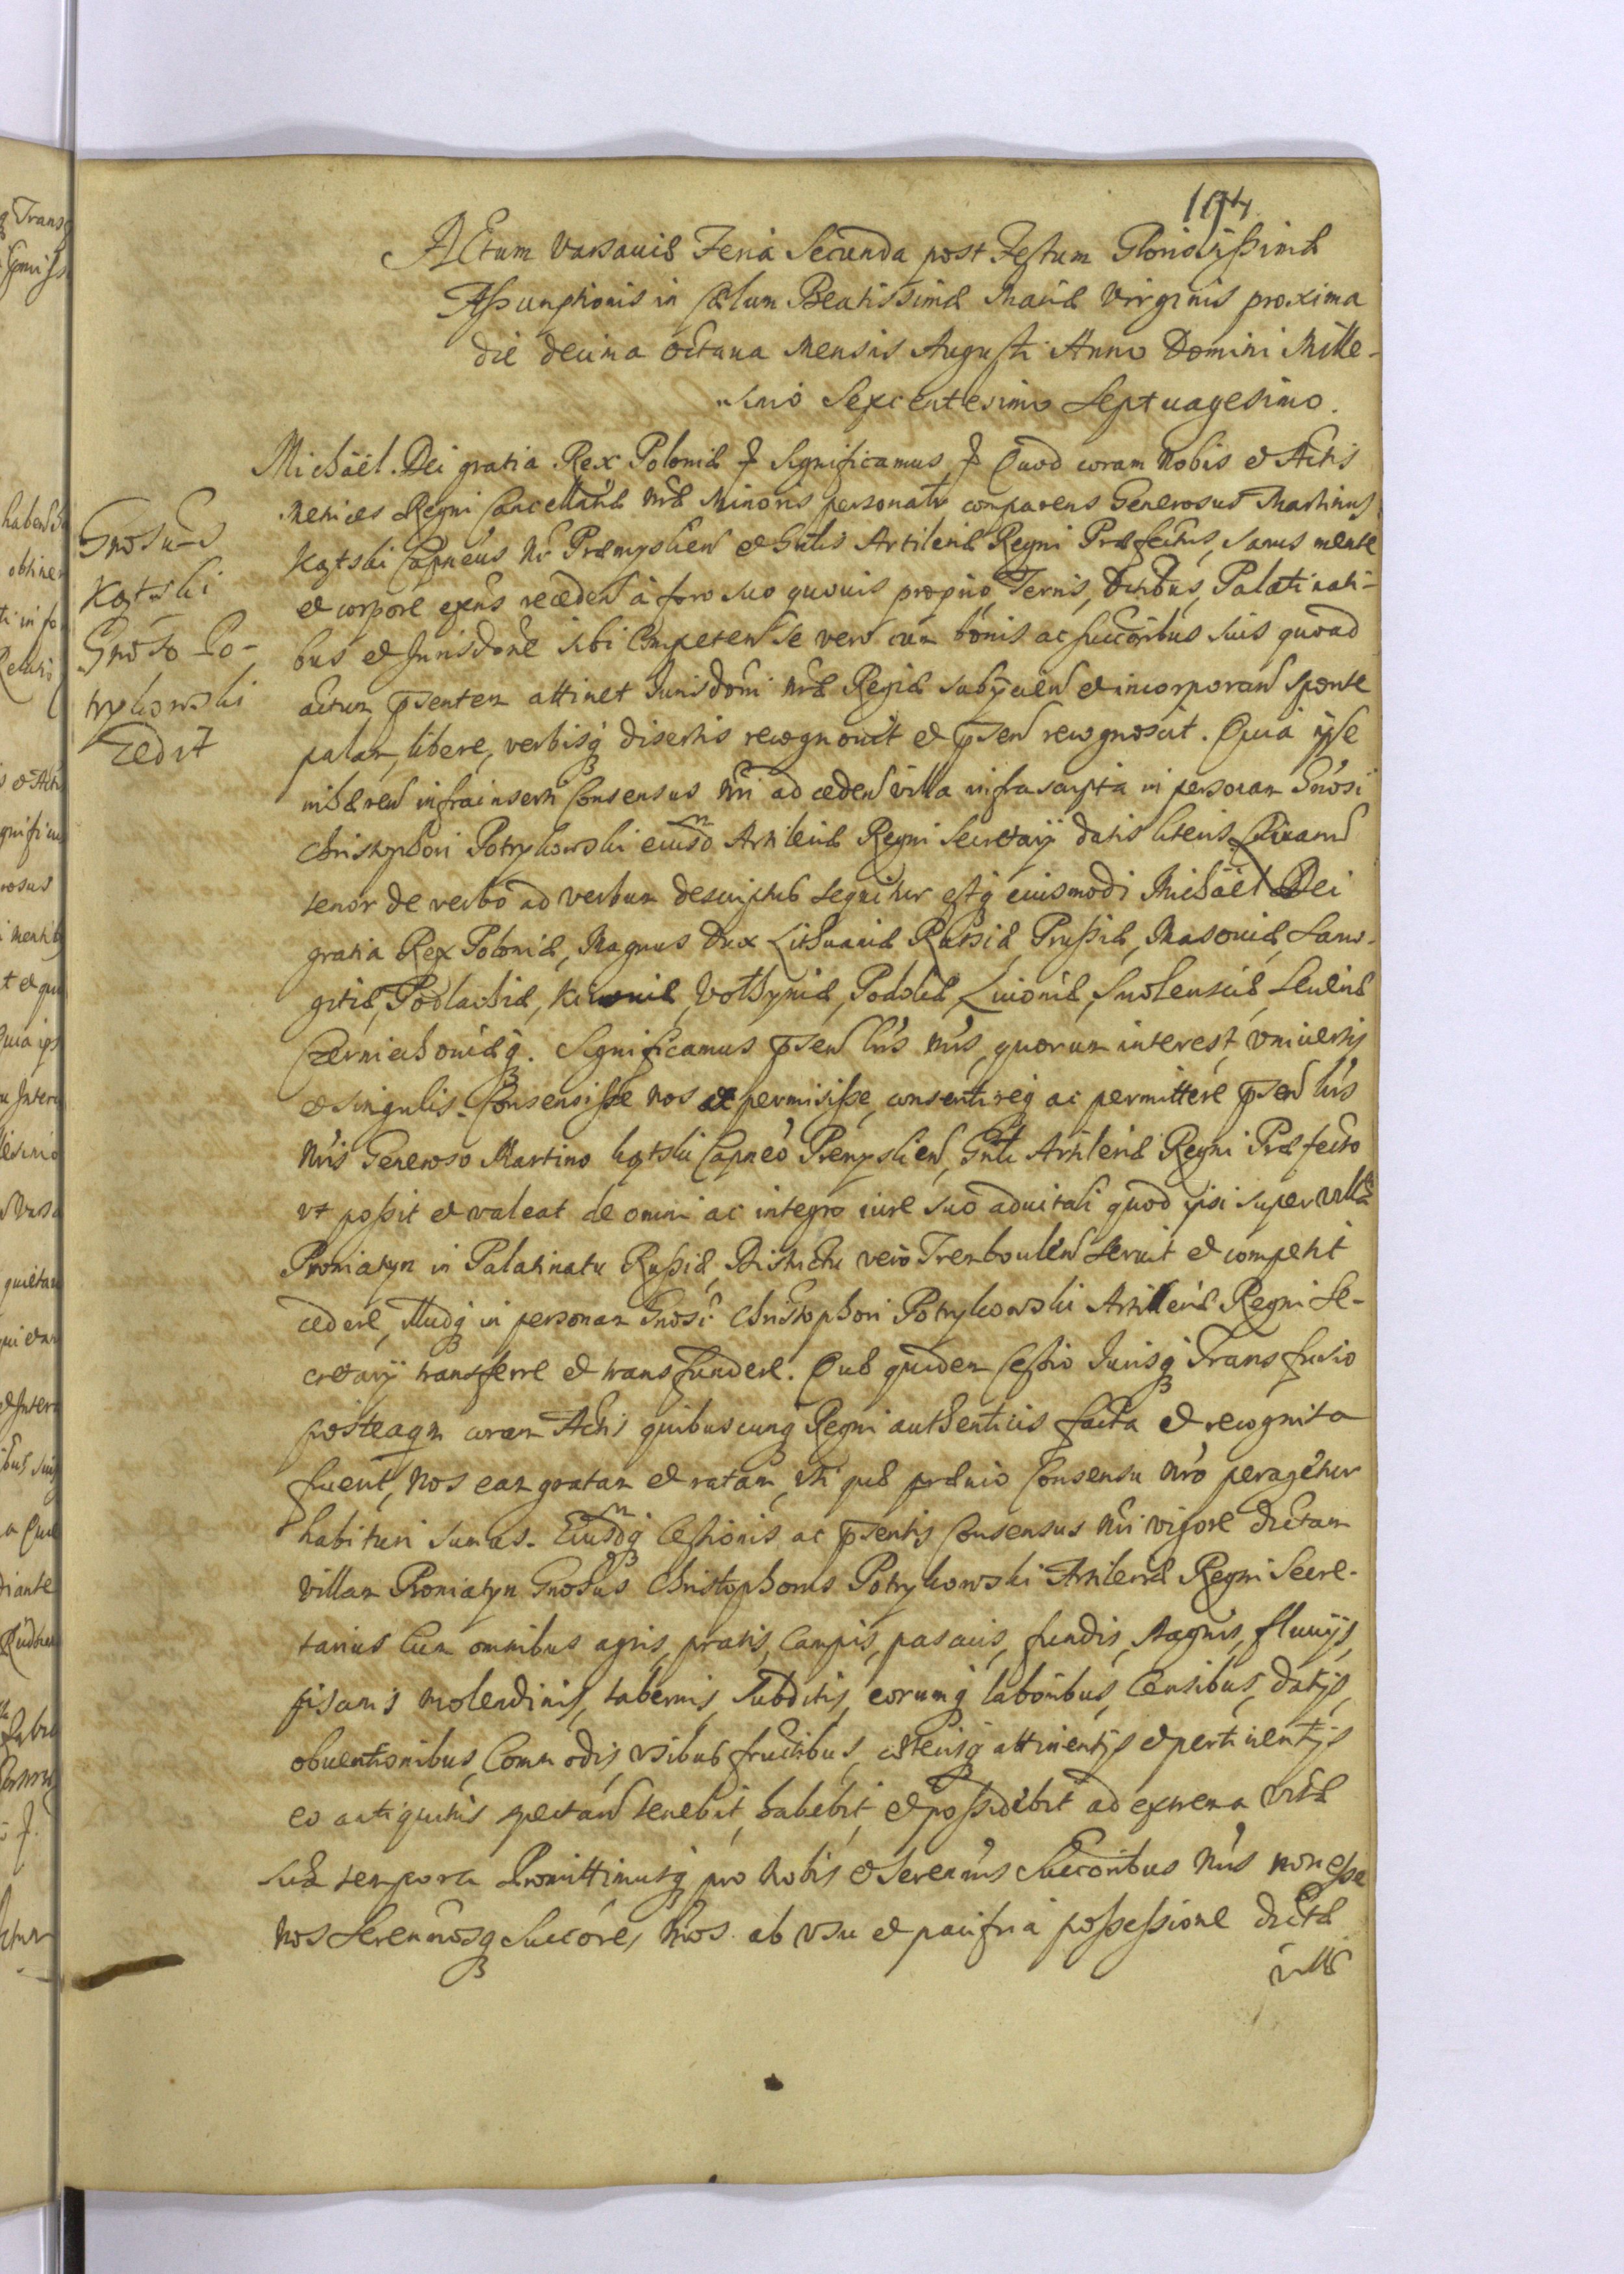 174
Actum Varsaviæ Feria Secunda post Festum Gloriosissimæ
Assumptionis in Cælum Beatissimæ Mariæ Virginis proxima
die decima octava Mensis Augusti Anno Domini Mille-
simo Sexcentesimo Septuagesimo.
Michäel Dei gratia Rex Poloniæ Significamus Quod coram Nobis et Actis
Metrices Regni Cancellariæ nræ Minoris personalr comparens Generosus Martinus
Kątski Capneus Nr Præmyslien et Gnlis Artileriæ Regni Præfectus, sanus mente
et corpore exns receden à foro suo quovis proprio, Terris, Dctibus, Palatinati-
bus et Jurisdone sibi Competen se vero cum bonis ac succoribus suis quoad
actum psentem attinet Jurisdoni nræ Regiæ subijcien et incorporan sponte
palam, libere, verbisq disertis recognovit et psen recognoscit. Quia ipse
inhæren infrainserti Consensus Nri ad ceden villa infrascripta in personam Gnosi
Christophori Potrykowski eiusd Artileriæ Regni Secretarij datis literis Quarum
tenor de verbo ad verbum descriptus sequitur estq eiusmodi Michäel Dei
gratia Rex Poloniæ, Magnus Dux Lithuaniæ Russiæ, Prussiæ, Masoviæ, Samo-
gitiæ, Podlachiæ, Kiioviæ, Volhyniæ, Podoliæ, Livoniæ, Smolensciæ, Severiæ
Czerniechoviæq. Significamus psen lris nris, quorum interest, vniversis
et singulis. Consensisse nos et permisisse, consentireq ac permittere psen lris
Nris Generoso Martino Kątski Capneo Premyslien, Gnli Artileriæ Regni Præfecto
vt possit et valeat de omni ac integro iure suo aduitali quod ipsi super villa
Proniatyn in Palatinatu Russiæ, Districtu vero Tremboulen servit et competit
cedere, Illudq in personam Gnosi Christophori Potrykowski Artileriæ Regni Se-
cretarij transferre et transfundere. Quæ quidem Cessio Jurisq Transfusio
posteaqm coram Actis quibuscunq Regni authenticis facta et recognita
fuerit, Nos eam gratam et ratam, vti quæ prævio Consensu nro peragetur
habituri sumus. Eiusdq Cessionis ac psentis Consensus Nri vigore dictam
villam Proniatyn Gnosus Christophorus Potrykowski Artileriæ Regni Secre-
tarius Cum omnibus agris, pratis, Campis, pascuis, fundis, stagnis, fluvijs,
piscinis molendinis, tabernis, subditis, eorumq laboribus, Censibus, datijs,
obventionibus, Commodis, vsibus fructibus, cæterisq attinentijs et pertinentijs
eo antiquitus spectan tenebit, habebit, et possidebit ad extrema vitæ
suæ tempora Promittimusq pro Nobis et Serenmis Succoribus Nris non esse
Nos Serenmosq Succores Nros ab vsu et pacifica possessione dictæ
villæ
Gnosus
Kątski
Gnoso Po-
trykowski
Cedit